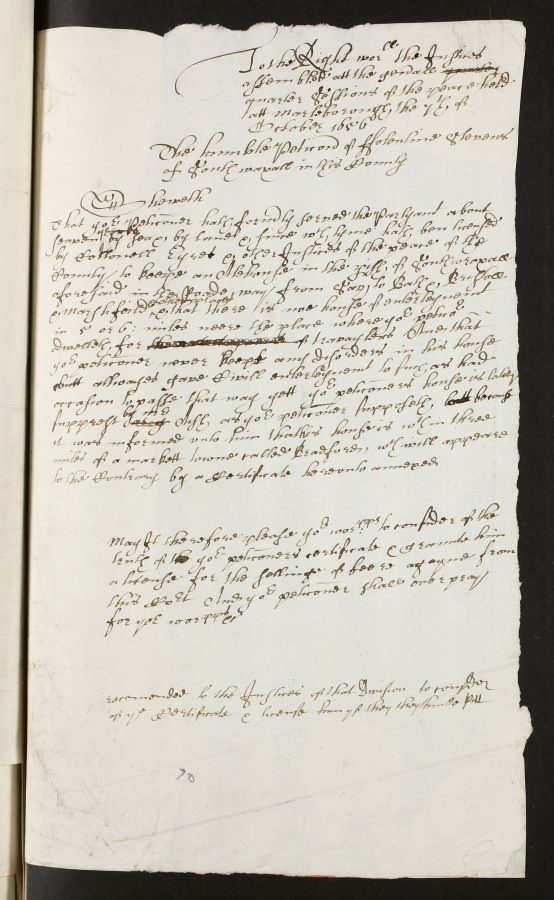 To the Right wor.ll the Justices
assembled att the genrall quarter
quarter Sessions of the peace held
att Marleborough the 7th of
October 1656
The humble Peticon of ffolentine Stevens
of South wraxall in this County
Sheweth
That yor Peticoner hath formerly served the Parlyamt about
seaven yeares by land & since wch tyme hath ben licensed
by Collonell Eyres & other Justices of the peace of the
County to keepe an Alehouse in the psh of Southwraxall
aforesaid in the Roade way from to Bath, Bristoll
& Marshfield & that there is noe house of entertaynment
in 5 or 6 miles neere the place where yor peticoner
dwelleth for of travaylers And that
yor peticoner never keept any disorders in his house
butt allwayes gave Civill entertaynment to such as had
occasion to passe that way yett yor peticoners house is lately
supprest by Mr as yor peticoner supposeth because
it was informed unto him that his house is wthin three
miles of a markett towne called Bradford, wch will appeare
to the Contrary by a Certificate hereunto annexed
May it therefore please yor worpps to consider of the
truth of yor peticoners certificate & graunte him
a license for the sellinge of beere agayne from
this Court And yor peticoner shall ever pray
for yor worpps &c
recomended to the Justices of that Division to consider
of ye Certificate & license him yf they thinke fitt
70